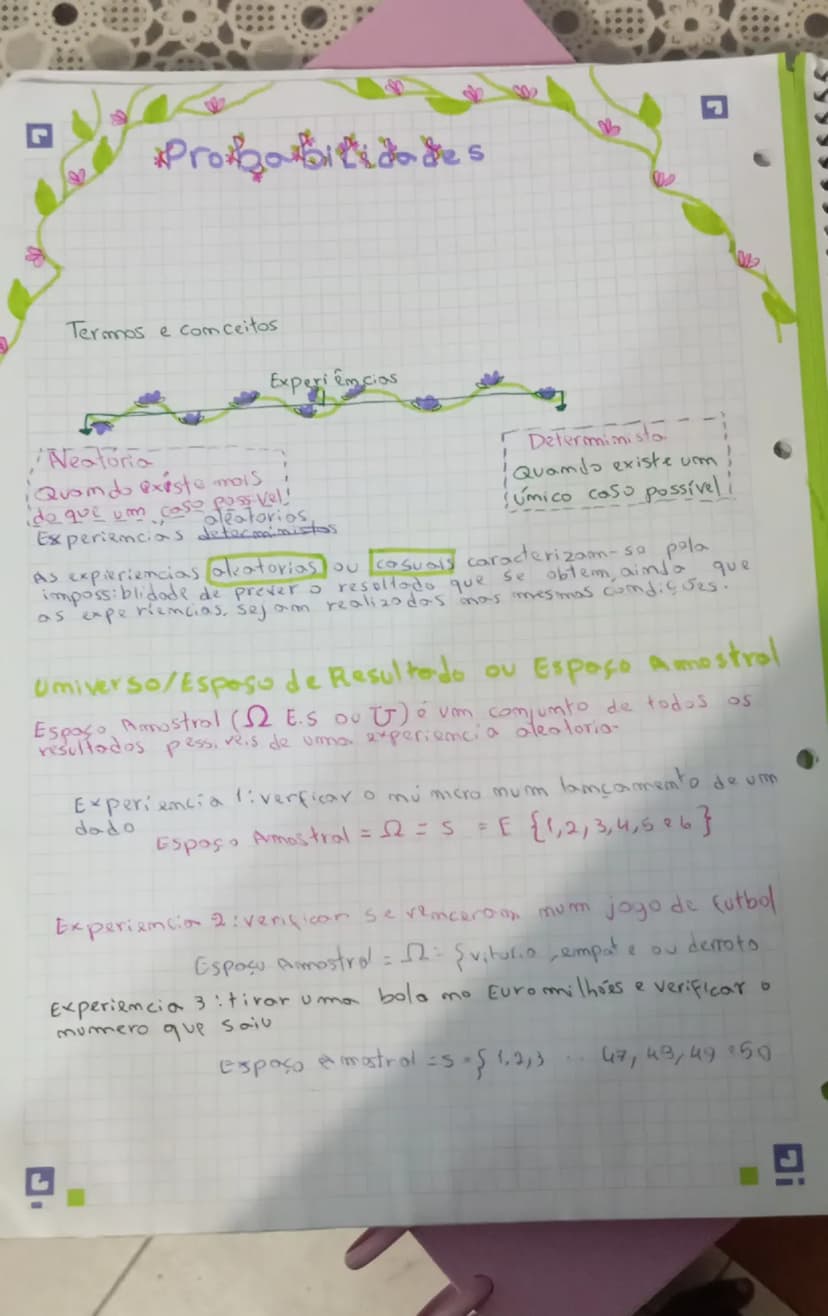 Probabilidades
Termos e comceitos
Experiêmcias
Aleatória
Quamdo existe mais
do que um caso possível!
Determimista
Quamdo existe um
úmico caso possível!
aleatorias
Experiemcias determimistas
As expieriemcias aleatorias ou casuais caracterizam-se pela
impossiblidade de prever o resultado que se obtem, aimda que
as experiemcias, sejam realizadas mas mesmas comdições.
Umiverso/Espaço de Resultado ou Espaço Amostral
Espaço Amostral (Ω E.S ou U) é um comjumto de todos os
resultados possiveis de uma experiemcia aleatoria.
Experiemcia 1: verficar o múmero mum lamçamemto de um
dado
Espaço Amostral = Ω = S = E {1,2,3,4,5 e 6}
Experiemcia 2: verificar se vemceram mum jogo de futbol
Espaço Amostral = Ω = {vitoria, empate ou derrota
Experiemcia 3: tirar uma bola mo Euromilhões e verificar o
mumero que saiu
Espaço Amostral = S = {1,2,3 .. 47, 48, 49 e 50